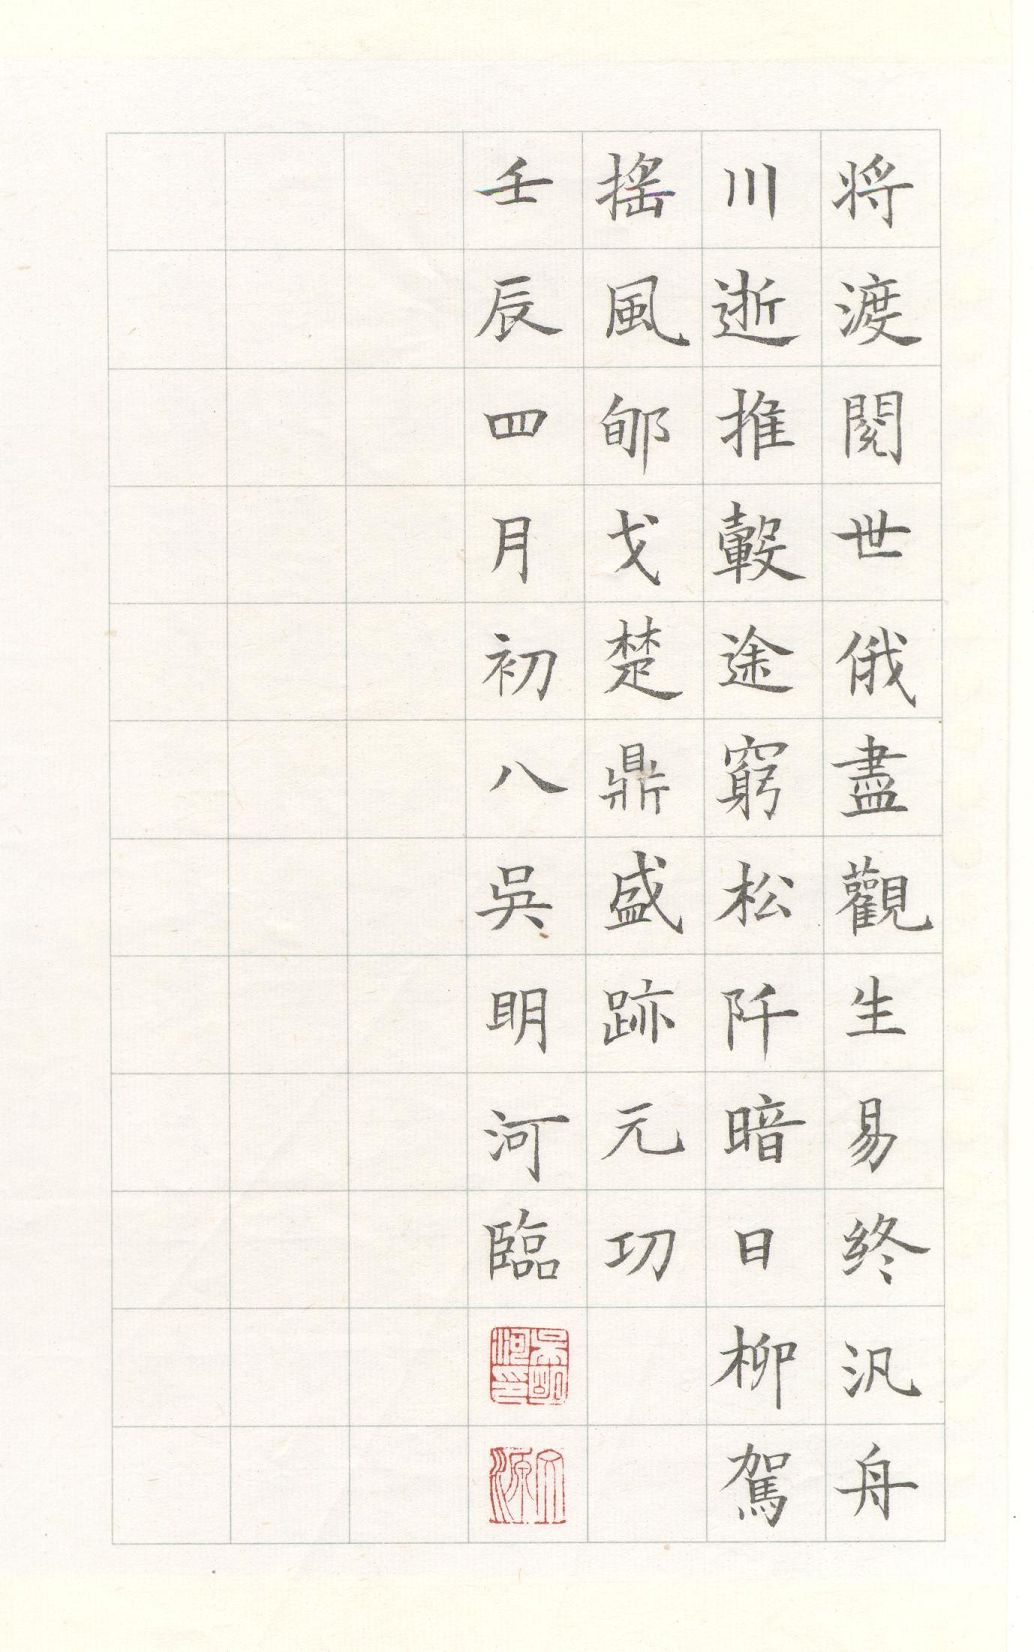 将渡閱世俄盡觀生易终汎舟
川逝推轂途窮松阡暗日柳駕
搖風郇戈楚鼎盛跡元功
壬辰四月初八吳明河臨
吳明河印